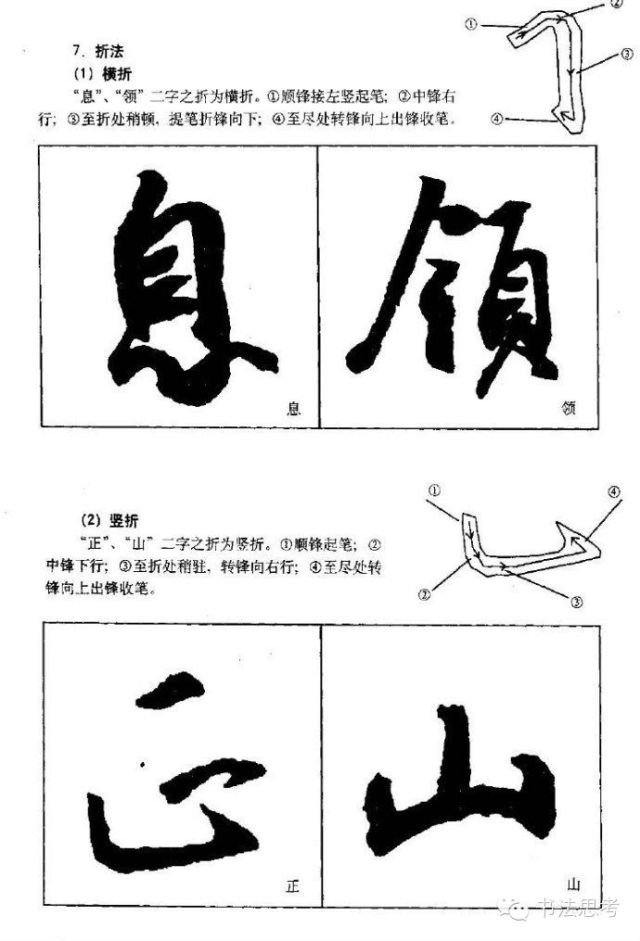 7. 折法
(1) 横折
“息”、“领”二字之折为横折。①顺锋接左竖起笔；②中锋右
行；③至折处稍顿，提笔折锋向下；④至尽处转锋向上出锋收笔。
①
②
③
④
息
領
息
领
(2) 竖折
“正”、“山”二字之折为竖折。①顺锋起笔；②
中锋下行；③至折处稍驻，转锋向右行；④至尽处转
锋向上出锋收笔。
①
④
②
③
正
山
正
山
书法思考